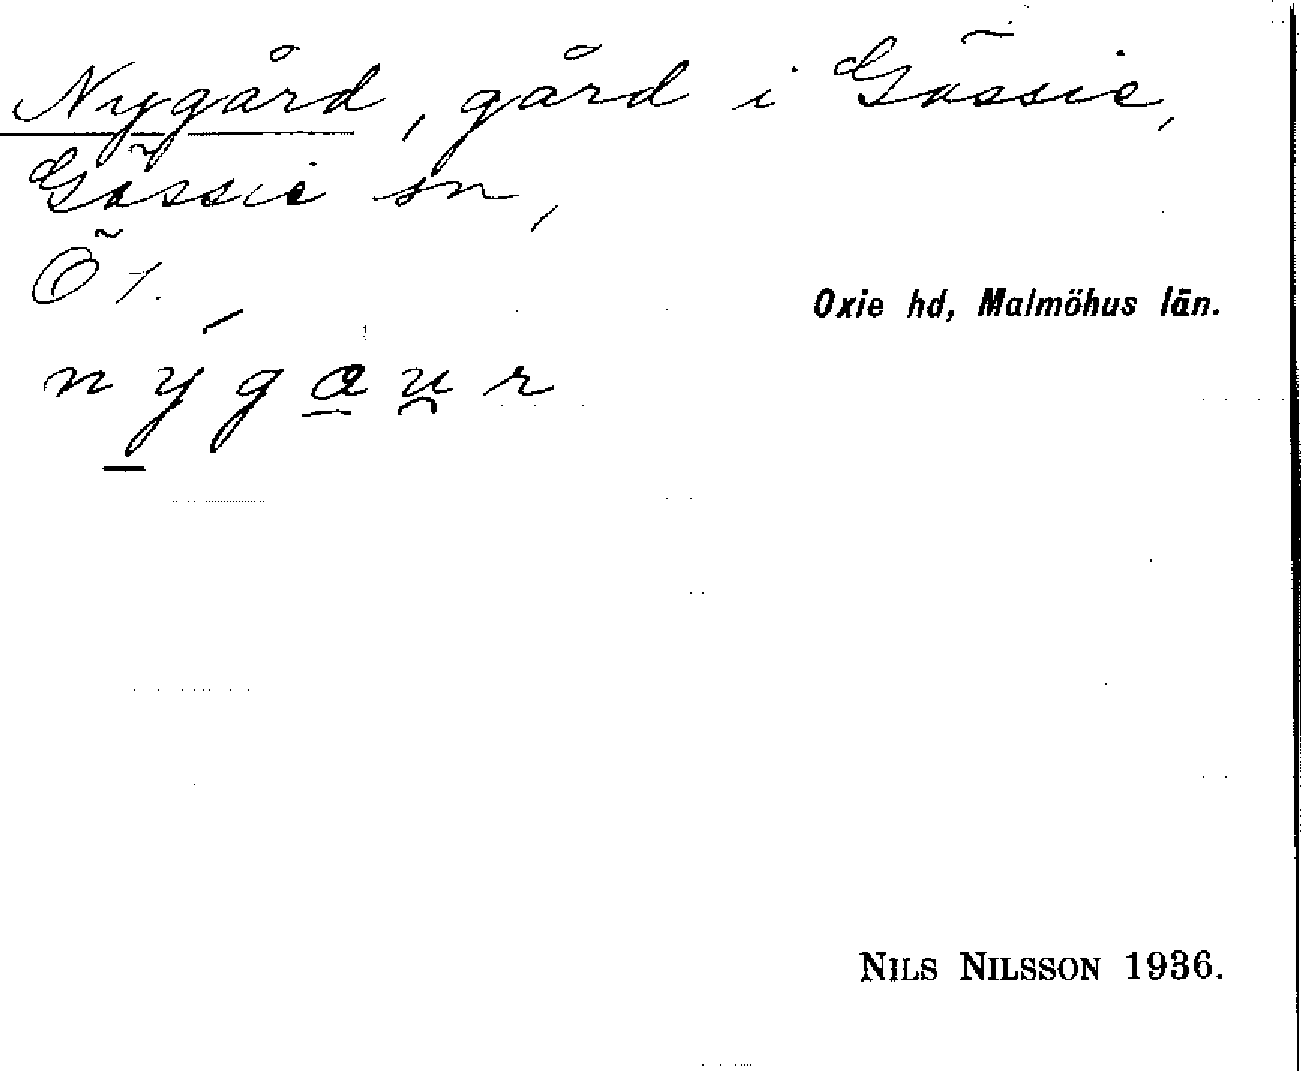 Nygård, gård i Gässie,
Gässie sn,
Ö 1.
Oxie hd, Malmöhus län.
nýgau̯r
NILS NILSSON 1936.